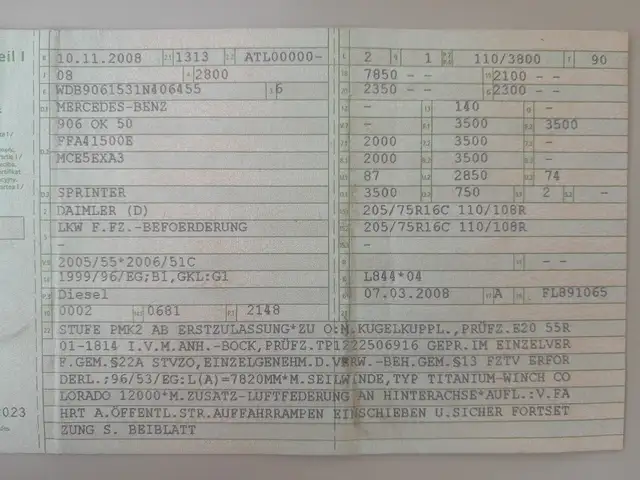 eil I
10.11.2008 1313 ATL00000- 2 1 110/3800 90
08 2800 7850 - - 2100 - -
WDB9061531N406455 6 2350 - - 2300 - -
MERCEDES-BENZ - 140 -
906 OK 50 - 3500 3500
FFA41500E 2000 3500 -
MCE5EXA3 2000 3500 -
87 2850 74
SPRINTER 3500 750 2 -
DAIMLER (D) 205/75R16C 110/108R
LKW F.FZ.-BEFOERDERUNG 205/75R16C 110/108R
- -
2005/55*2006/51C - -
1999/96/EG;B1,GKL:G1 L844*04
Diesel 07.03.2008 A FL891065
0002 0681 2148
STUFE PMK2 AB ERSTZULASSUNG*ZU O:M.KUGELKUPPL.,PRÜFZ.E20 55R
01-1814 I.V.M.ANH.-BOCK,PRÜFZ.TP1222506916 GEPR.IM EINZELVER
F.GEM.§22A STVZO,EINZELGENEHM.D.VERW.-BEH.GEM.§13 FZTV ERFOR
DERL.;96/53/EG:L(A)=7820MM*M.SEILWINDE,TYP TITANIUM-WINCH CO
LORADO 12000*M.ZUSATZ-LUFTFEDERUNG AN HINTERACHSE*AUFL.:V.FA
HRT A.ÖFFENTL.STR.AUFFAHRRAMPEN EINSCHIEBEN U.SICHER FORTSET
2023 ZUNG S. BEIBLATT